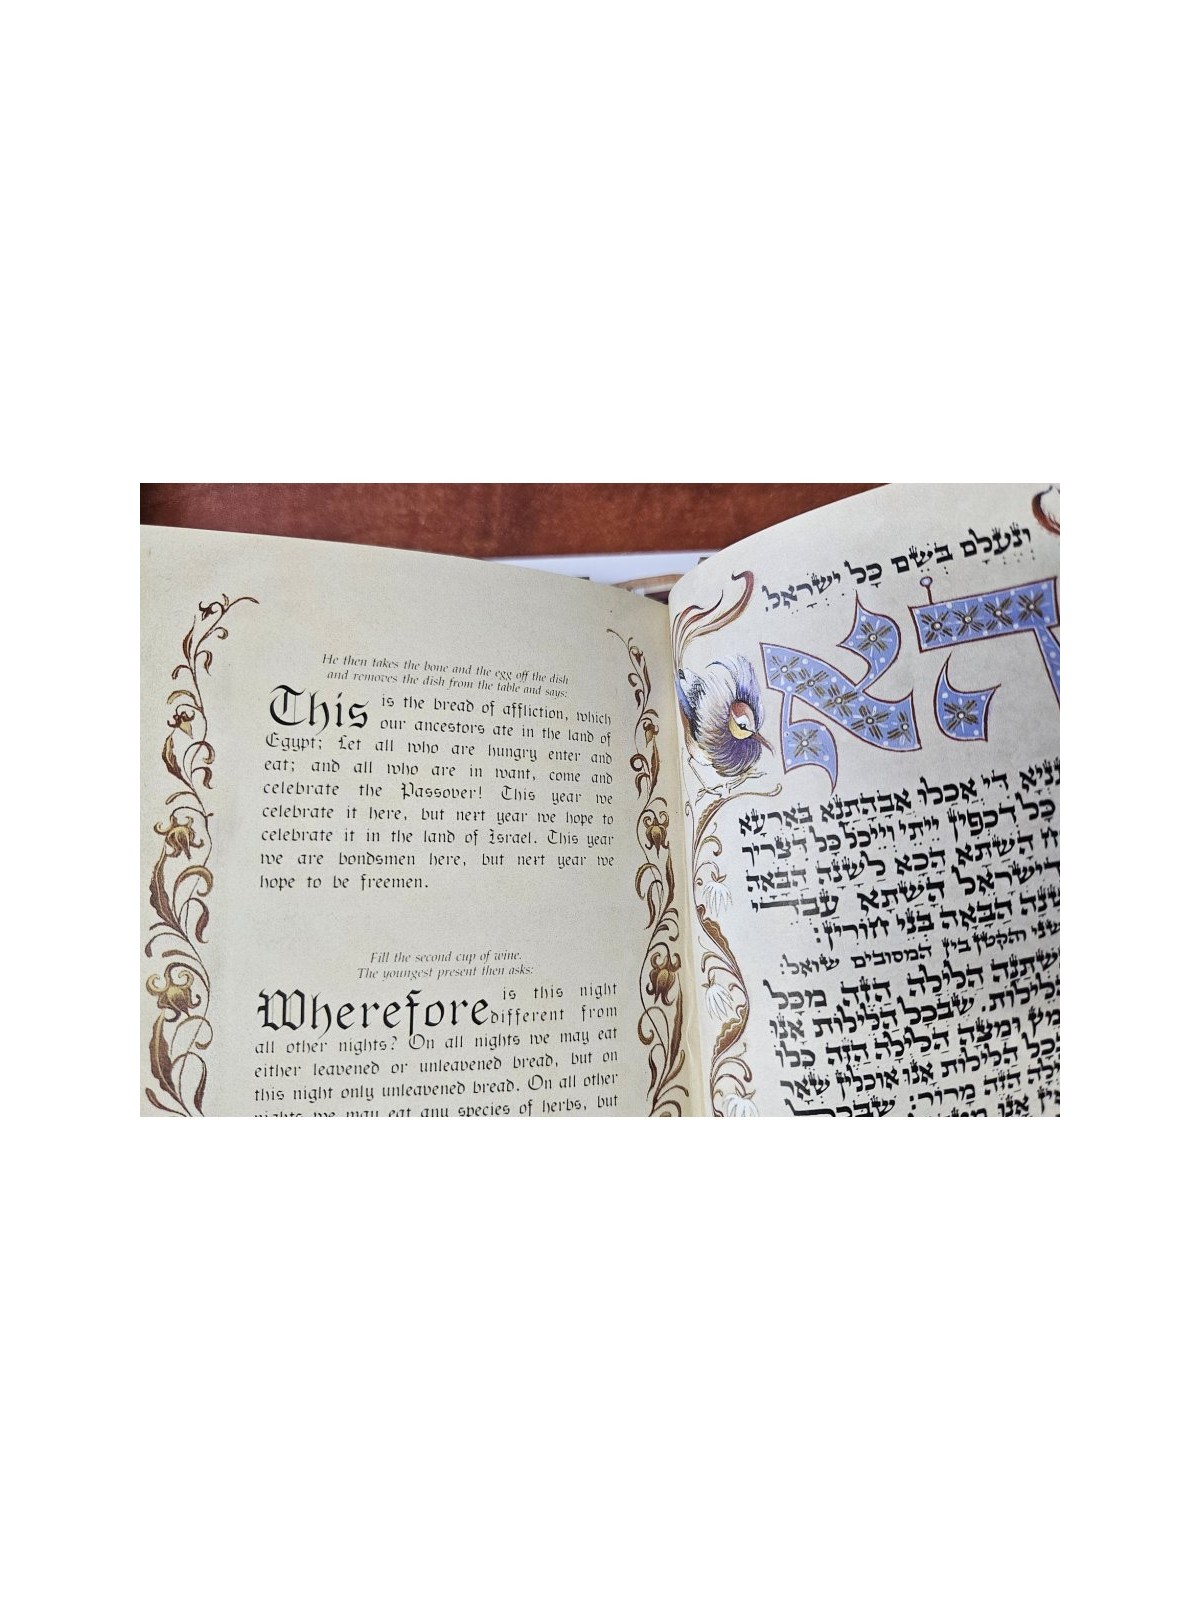 He then takes the bone and the egg off the dish
and removes the dish from the table and says:
This is the bread of affliction, which
our ancestors ate in the land of
Egypt; Let all who are hungry enter and
eat; and all who are in want, come and
celebrate the Passover! This year we
celebrate it here, but next year we hope to
celebrate it in the land of Israel. This year
we are bondsmen here, but next year we
hope to be freemen.
Fill the second cup of wine.
The youngest present then asks:
Wherefore is this night
different from
all other nights? On all nights we may eat
either leavened or unleavened bread, but on
this night only unleavened bread. On all other
nights we may eat any species of herbs, but
וְנֶעְלָם בְּשֵׁם כָּל יִשְׂרָאֵל.
הָא
די אֲכָלוּ אַבְהָתָנָא בְּאַרְעָא
כָּל דִכְפִין יֵיתֵי וְיֵיכֹל כָּל דִצְרִיךְ
הָשַׁתָּא הָכָא לְשָׁנָה הַבָּאָה
דְיִשְׂרָאֵל הָשַׁתָּא עַבְדֵי
לְשָׁנָה הַבָּאָה בְּנֵי חוֹרִין:
שני והקטן בין המסובים שואל:
הַלַּיְלָה הַזֶּה מִכָּל
הַלֵּילוֹת. שֶׁבְּכָל הַלֵּילוֹת אָנוּ
וּמַצָּה הַלַּיְלָה הַזֶּה כֻּלּוֹ
הַלֵּילוֹת אָנוּ אוֹכְלִין שְׁאָר
הַזֶּה מָרוֹר: שֶׁבְּכָל
אָנוּ